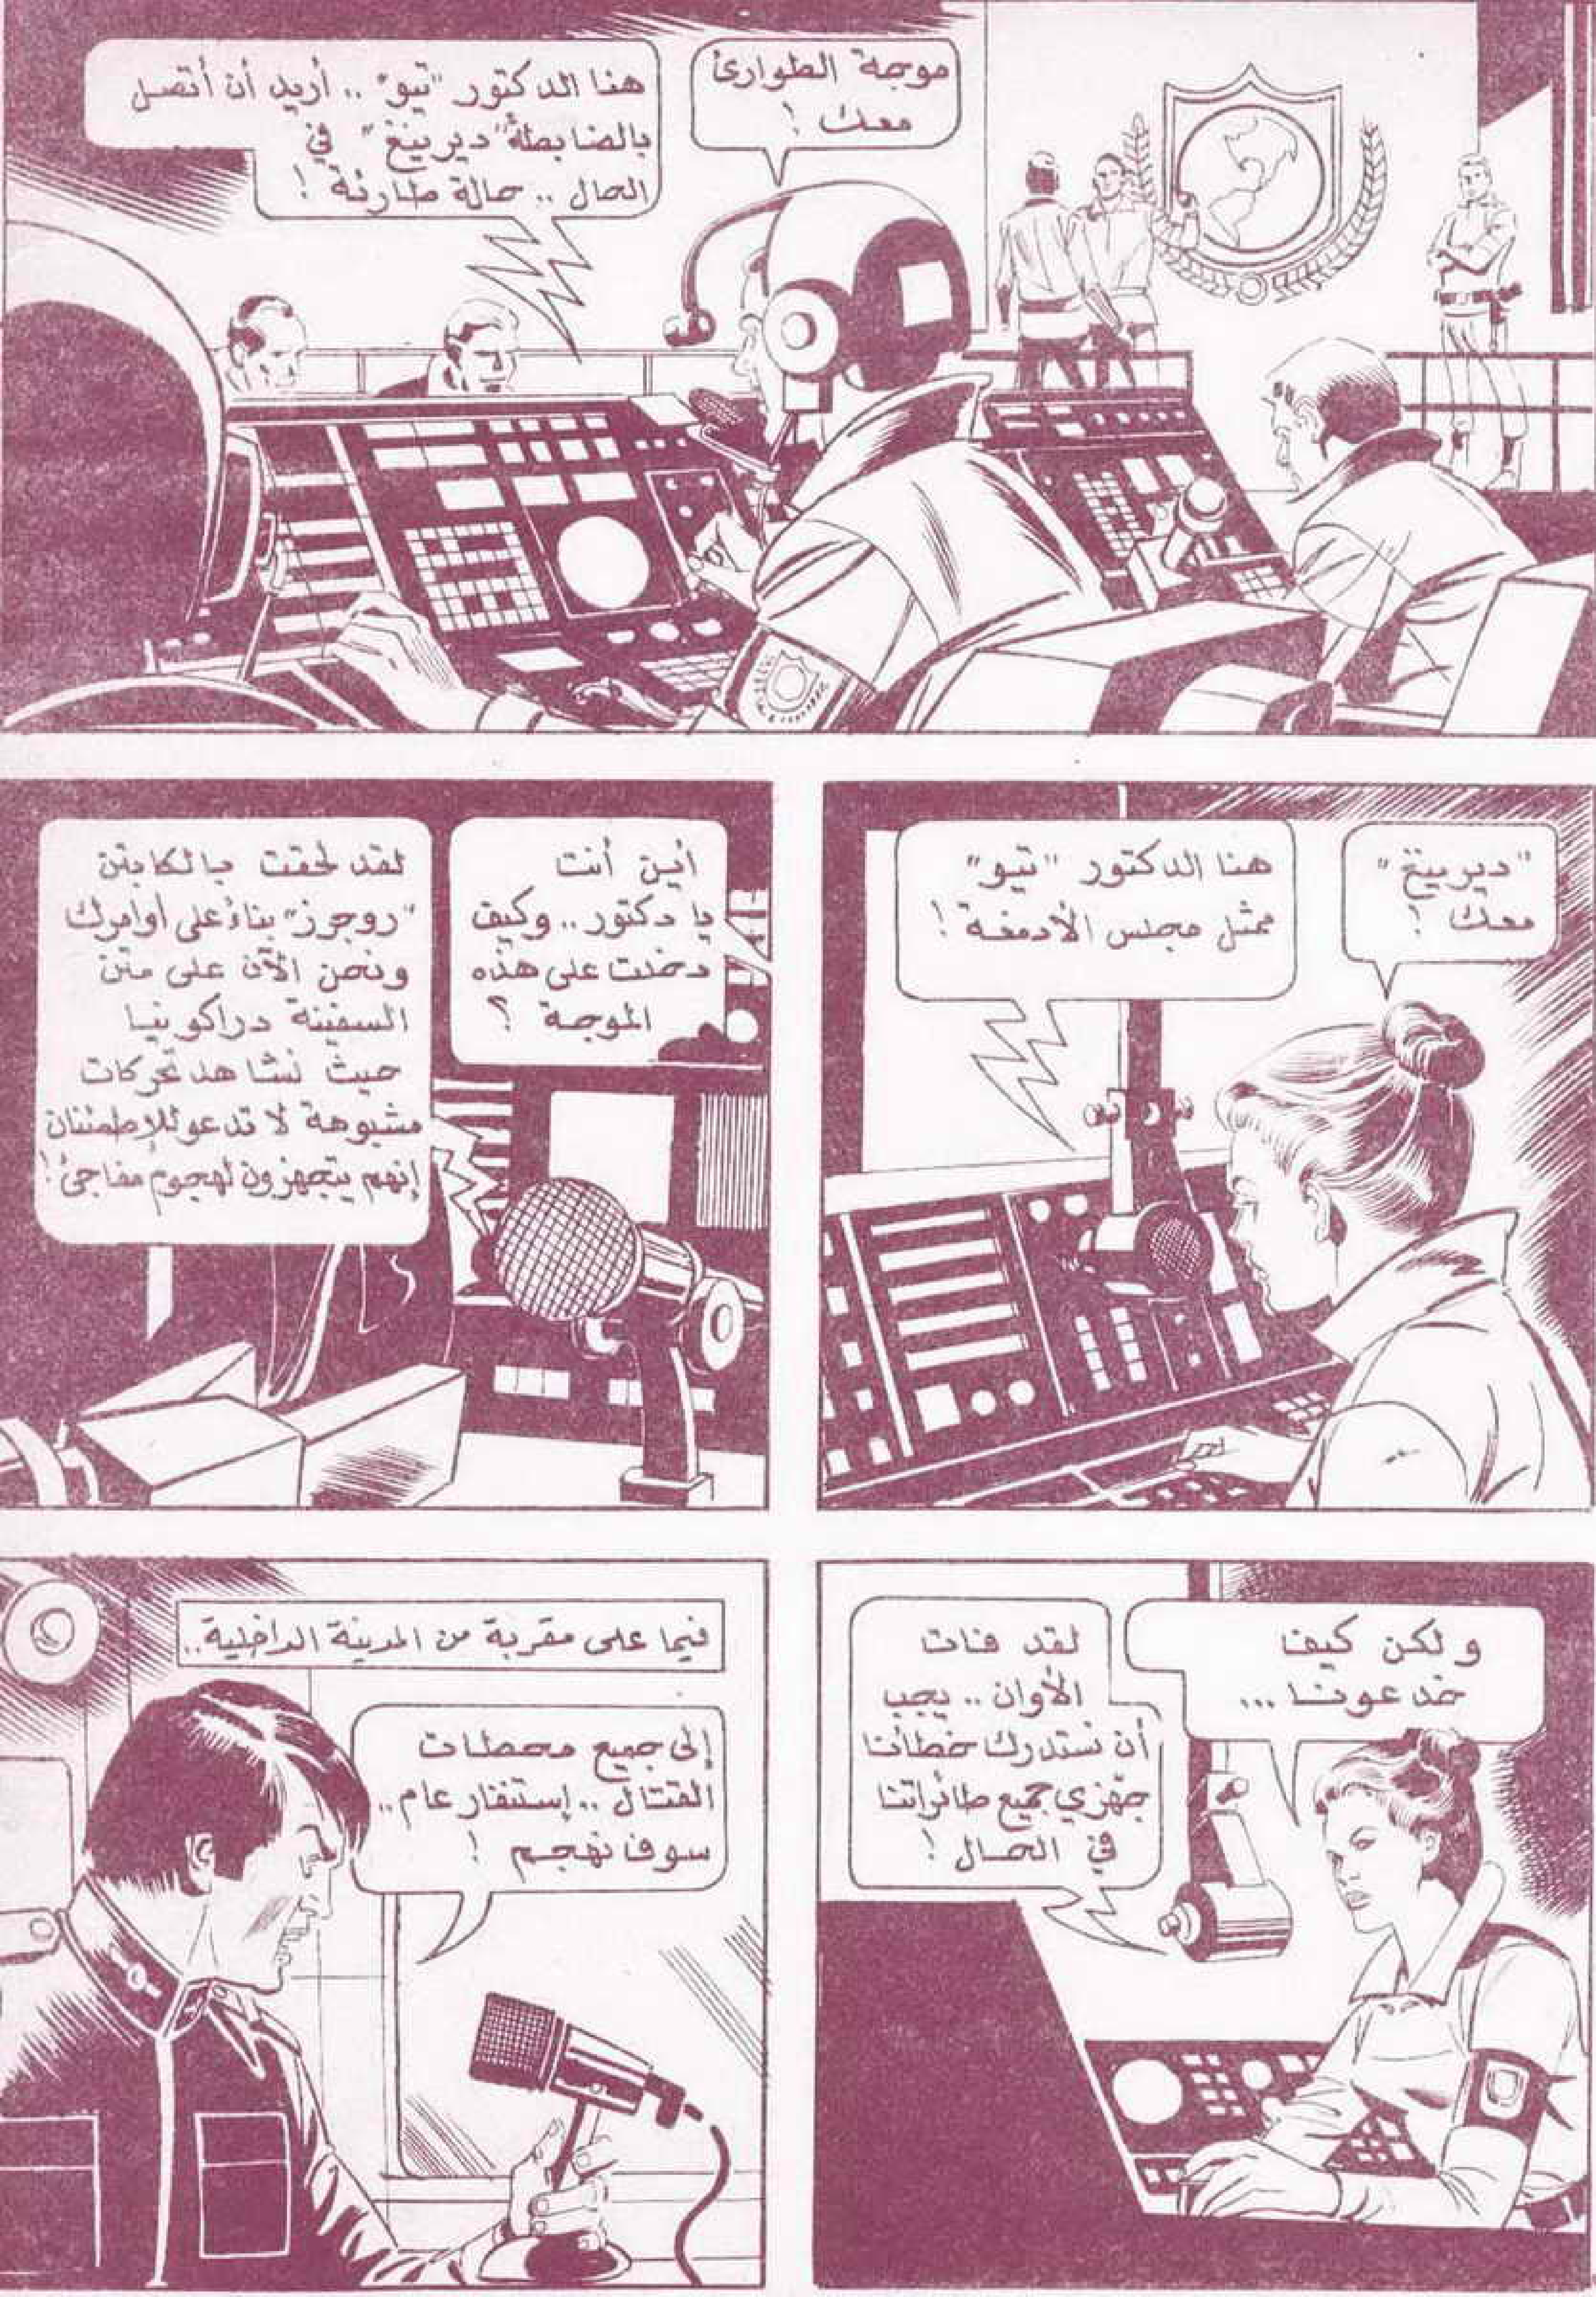 موجة الطوارئ
معك !
هنا الدكتور "تيو" .. أريد أن أتصل
بالضابطة "ديرينغ" في
الحال .. حالة طارئة !
"ديرينغ"
معك !
هنا الدكتور "تيو"
ممثل مجلس الأدمغة !
أين أنت
يا دكتور .. وكيف
دخلت على هذه
الموجة ؟
لقد لحقت بالكابتن
"روجرز" بناءً على أوامرك
ونحن الآن على متن
السفينة دراكونيا
حيث نشاهد تحركات
مشبوهة لا تدعو للإطمئنان
إنهم يتجهزون لهجوم مفاجئ !
ولكن كيف
خدعونا ...
لقد فات
الأوان .. يجب
أن نستدرك خطأنا
جهّزي جميع طائراتنا
في الحال !
فيما على مقربة من المدينة الداخلية ..
إلى جميع محطات
القتال .. إستنفار عام ..
سوف نهجم !